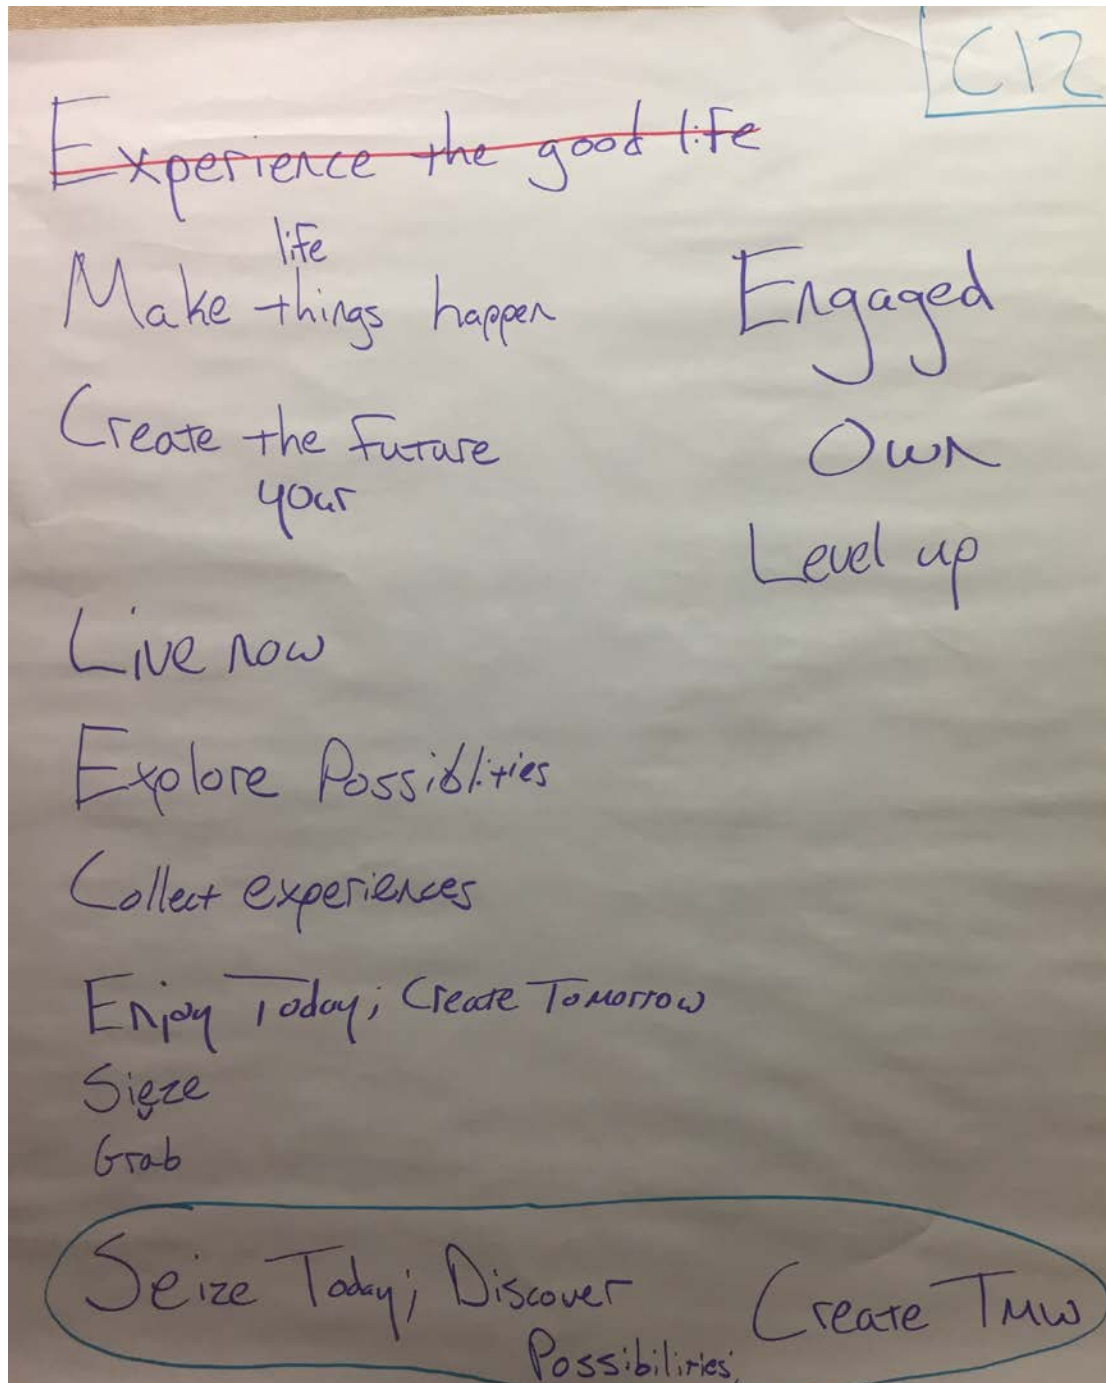 C12
Experience the good life
life
Make things happen
Create the future
your
Live now
Explore Possiblities
Collect experiences
Enjoy Today; Create Tomorrow
Sieze
Grab
Engaged
Own
Level up
Seize Today; Discover
Possibilities,
Create TMW